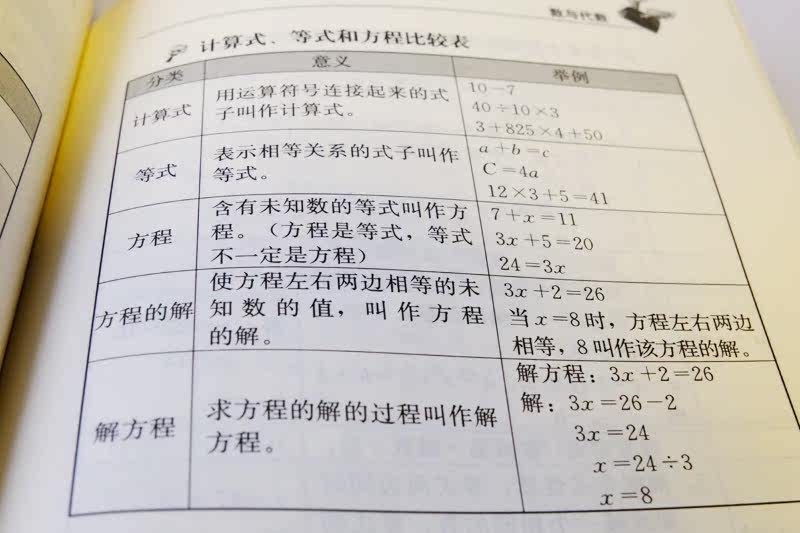 数与代数
计算式、等式和方程比较表
分类
意义
举例
计算式
用运算符号连接起来的式
子叫作计算式。
10－7
40÷10×3
3+825×4+50
等式
表示相等关系的式子叫作
等式。
a+b=c
C=4a
12×3+5=41
方程
含有未知数的等式叫作方
程。（方程是等式，等式
不一定是方程）
7+x=11
3x+5=20
24=3x
方程的解
使方程左右两边相等的未
知数的值，叫作方程
的解。
3x+2=26
当x=8时，方程左右两边
相等，8叫作该方程的解。
解方程
求方程的解的过程叫作解
方程。
解方程：3x+2=26
解：3x=26－2
3x=24
x=24÷3
x=8